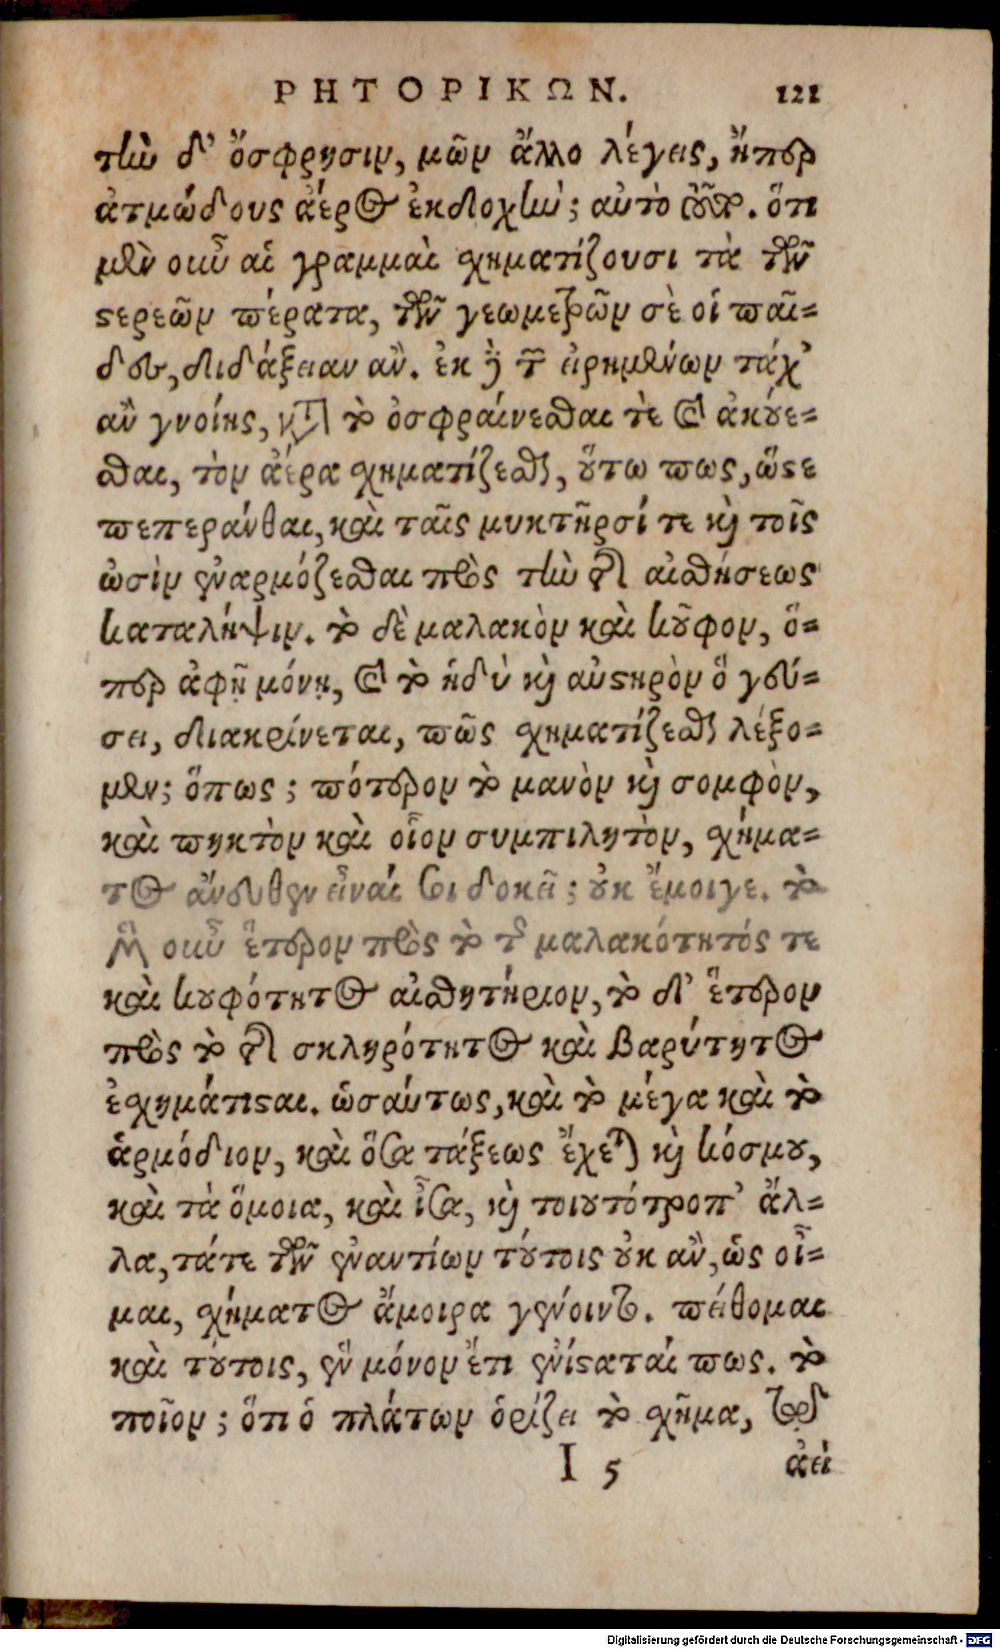 ΡΗΤΟΡΙΚΩΝ. 121
τὴν δ' ὄσφρησιν, μῶν ἄλλο λέγεις, ἤπερ
ἀτμώδους ἀέρος ἐκδοχήν; αὐτὸ τοῦτο. ὅτι
μὲν οὖν αἱ γραμμαὶ σχηματίζουσι τὰ τῶν
στερεῶν πέρατα, τῶν γεωμετρῶν σὲ οἱ παῖ-
δες, διδάξειαν ἄν. ἐκ δὲ τῶν εἰρημένων τάχ'
ἂν γνοίης, κατὰ τὸ ὀσφραίνεσθαί τε καὶ ἀκούε-
σθαι, τὸν ἀέρα σχηματίζεσθαι, οὕτω πως, ὥστε
πεπεράνθαι, καὶ ταῖς μυκτῆρσί τε καὶ τοῖς
ὠσὶν ἐναρμόζεσθαι πρὸς τὴν τῆς αἰσθήσεως
κατάληψιν. τὸ δὲ μαλακὸν καὶ κοῦφον, ὅ-
περ ἀφῇ μόνῃ, καὶ τὸ ἡδὺ καὶ αὐστηρὸν ὃ γεύ-
σει, διακρίνεται, πῶς σχηματίζεσθαι λέξο-
μεν; ὅπως; πότερον τὸ μανὸν καὶ σομφὸν,
καὶ πηκτὸν καὶ οἷον συμπιλητὸν, σχήμα-
τος ἄνευθεν εἶναί σοι δοκεῖ; οὐκ ἔμοιγε. τὸ
μὲν οὖν ἕτερον πρὸς τὸ τῆς μαλακότητός τε
καὶ κουφότητος αἰσθητήριον, τὸ δ' ἕτερον
πρὸς τὸ τῆς σκληρότητος καὶ βαρύτητος
ἐσχημάτισται. ὡσαύτως, καὶ τὸ μέγα καὶ τὸ
ἁρμόδιον, καὶ ὅσα τάξεως ἔχεται καὶ κόσμου,
καὶ τὰ ὅμοια, καὶ ἶσα, καὶ τοιουτότροπ' ἄλ-
λα, τάτε τῶν ἐναντίων τούτοις οὐκ ἂν, ὡς οἶ-
μαι, σχήματος ἄμοιρα γένοιντο. πείθομαι
καὶ τούτοις, ἓν μόνον ἔτι ἐνίσταταί πως. τὸ
ποῖον; ὅτι ὁ πλάτων ὁρίζει τὸ σχῆμα,
I 5 ἀεὶ
Digitalisierung gefördert durch die Deutsche Forschungsgemeinschaft - DFG